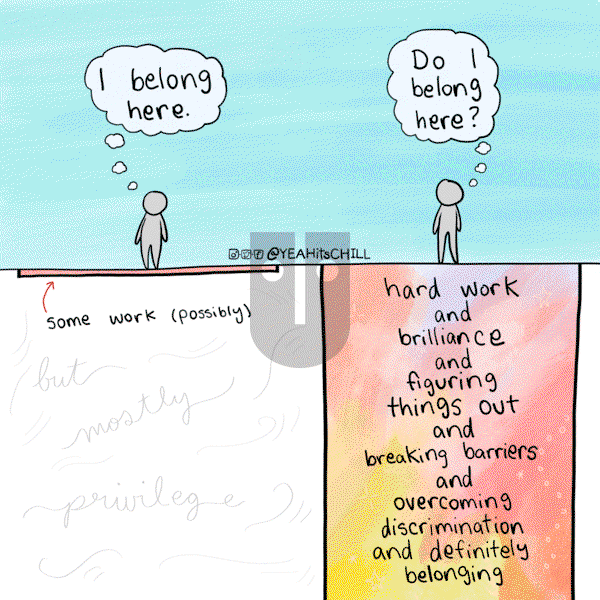 I belong
here.
Do I
belong
here?
@YEAHitsCHILL
some work (possibly)
but
mostly
privilege
hard work
and
brilliance
and
figuring
things out
and
breaking barriers
and
overcoming
discrimination
and definitely
belonging